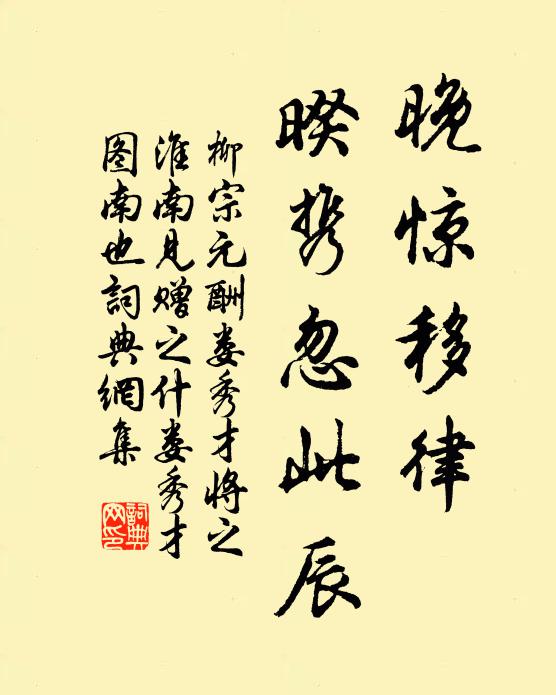 晚惊移律
暌携忽此辰
柳宗元酬娄秀才将之
淮南见赠之什娄秀才
图南也詞典網集
詞典
网印